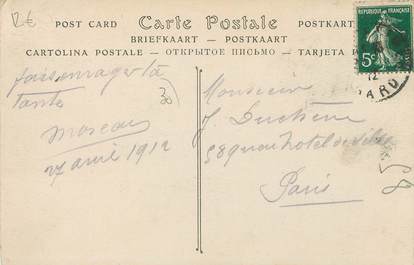 POST CARD Carte Postale POSTKARTE
BRIEFKAART — POSTKAART
CARTOLINA POSTALE — ОТКРЫТОЕ ПИСЬМО — TARJETA
REPUBLIQUE FRANÇAISE
5c
12
tante
Moscou
27 avril 1912
Monsieur
J Duchêne
58 quai hotel de ville
Paris